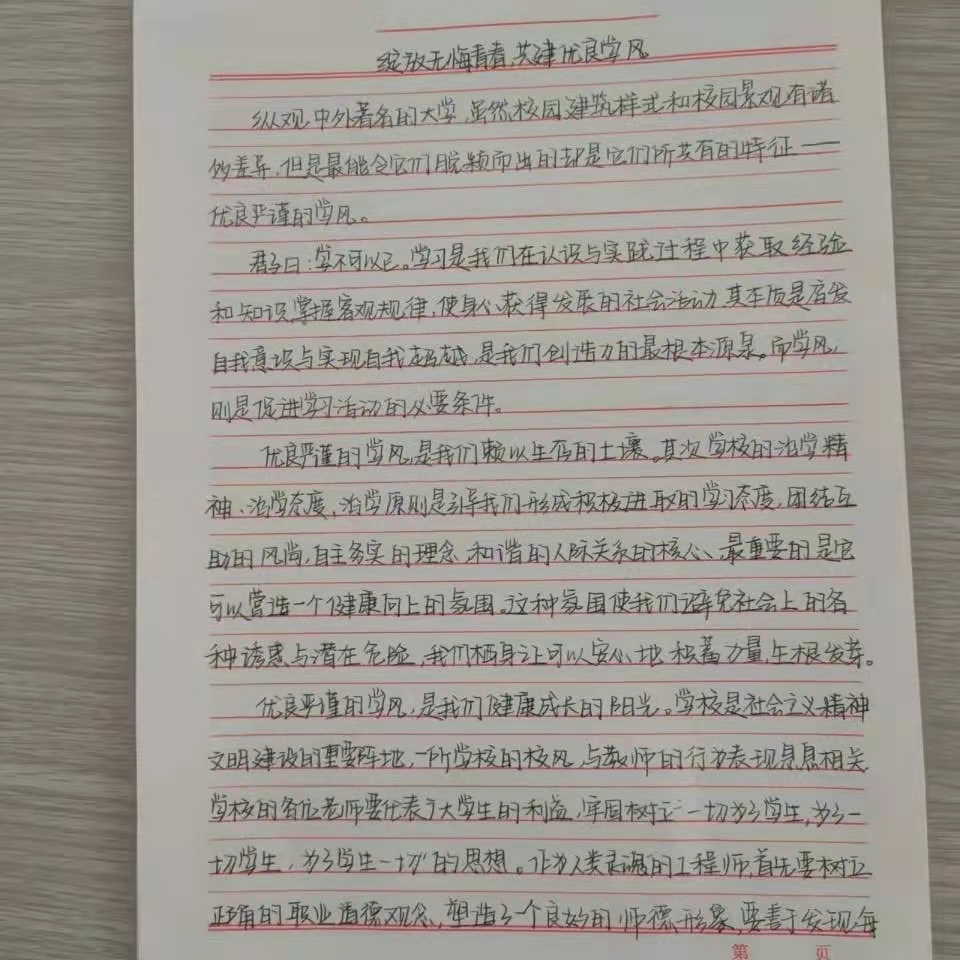 绽放无悔青春,共建优良学风
纵观中外著名的大学,虽然校园建筑样式和校园景观有诸
多差异,但是最能令它们脱颖而出的却是它们所共有的特征——
优良严谨的学风。
君子曰:学不可以已。学习是我们在认识与实践过程中获取经验
和知识,掌握客观规律,使身心获得发展的社会活动,其本质是启发
自我意识与实现自我超越,是我们创造力的最根本源泉。而学风,
则是促进学习活动的必要条件。
优良严谨的学风,是我们赖以生存的土壤。其次学校的治学精
神、治学态度、治学原则是引导我们形成积极进取的学习态度,团结互
助的风尚,自主务实的理念,和谐的人际关系的核心、最重要的是它
可以营造一个健康向上的氛围。这种氛围使我们避免社会上的各
种诱惑与潜在危险,我们栖身让可以安心地积蓄力量,生根发芽。
优良严谨的学风,是我们健康成长的阳光。学校是社会主义精神
文明建设的重要阵地,一所学校的校风,与教师的行为表现息息相关
学校的各位老师要代表广大学生的利益,牢固树立一切为了学生,为了一
切学生,为了学生一切"的思想。作为人类灵魂的工程师,首先要树立
正确的职业道德观念,塑造了一个良好的师德形象,要善于发现每
第 页